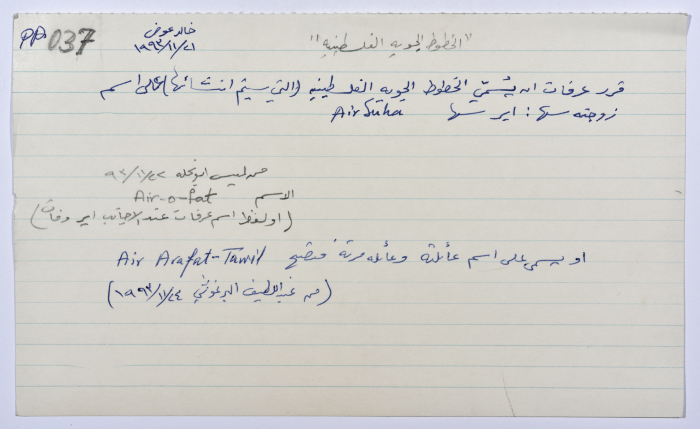 PP. 037
خالد عوض
١٩٩٣/١١/٢١
"الخطوط الجويه الفلسطينيه"
قرر عرفات ان يُسّمي الخطوط الجويه الفلسطينيه (التي سيتم انشائها) على اسم
زوجته سها : اير سها Air Suha
من لميس ابو نحله ٩٣/١١/٢٢
الاسم Air-o-Fat
(او لفظ اسم عرفات عند الاجانب اير وفات)
او يسمى على اسم عائلته وعائله مرته فتصبح Air Arafat-Tawil
(من عبد اللطيف البرغوثي ١٩٩٣/١١/٢٤)